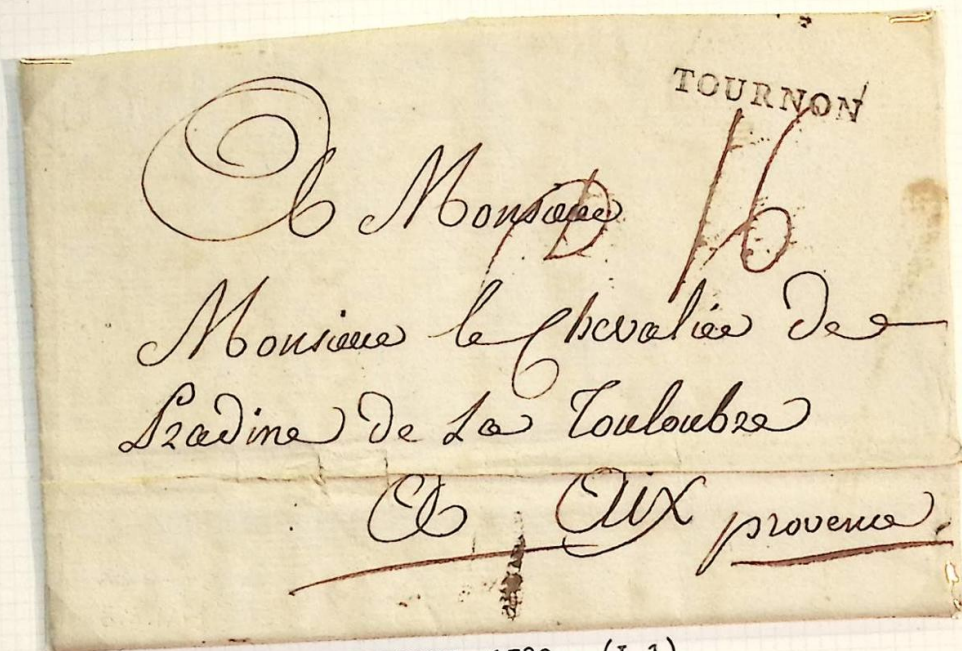 TOURNON
A Monsieur
16
Monsieur le Chevalier De
Pradine de La Touloubre
A Aix provence
(L 1)